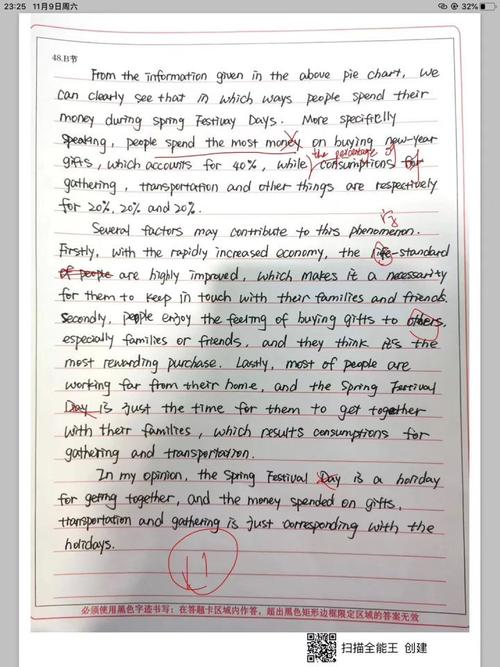 23:25 11月9日周六
32%
48.B节
From the information given in the above pie chart, we
can clearly see that in which ways people spend their
money during Spring Festivay Days. More specifielly
speaking, people spend the most money on buying new-year
gifts, which accounts for 40%, while consumptions for
the percentage of
gathering, transportation and other things are respectively
for 20%, 20% and 20%.
Several factors may contribute to this phenomenon.
Firstly, with the rapidly increased economy, the life-standard
of people are highly improved, which makes it a necessarity
for them to keep in touch with their families and friends.
Secondly, people enjoy the feeling of buying gifts to others,
especially families or friends, and they think it's the
most rewarding purchase. Lastly, most of people are
working far from their home, and the Spring Festival
Day is just the time for them to get together
with their families, which results consumptions for
gathering and transportation.
In my opinion, the Spring Festival Day is a holiday
for getting together, and the money spended on gifts,
transportation and gathering is just corresponding with the
holidays.
必须使用黑色字迹书写；在答题卡区域内作答，超出黑色矩形边框限定区域的答案无效
扫描全能王 创建